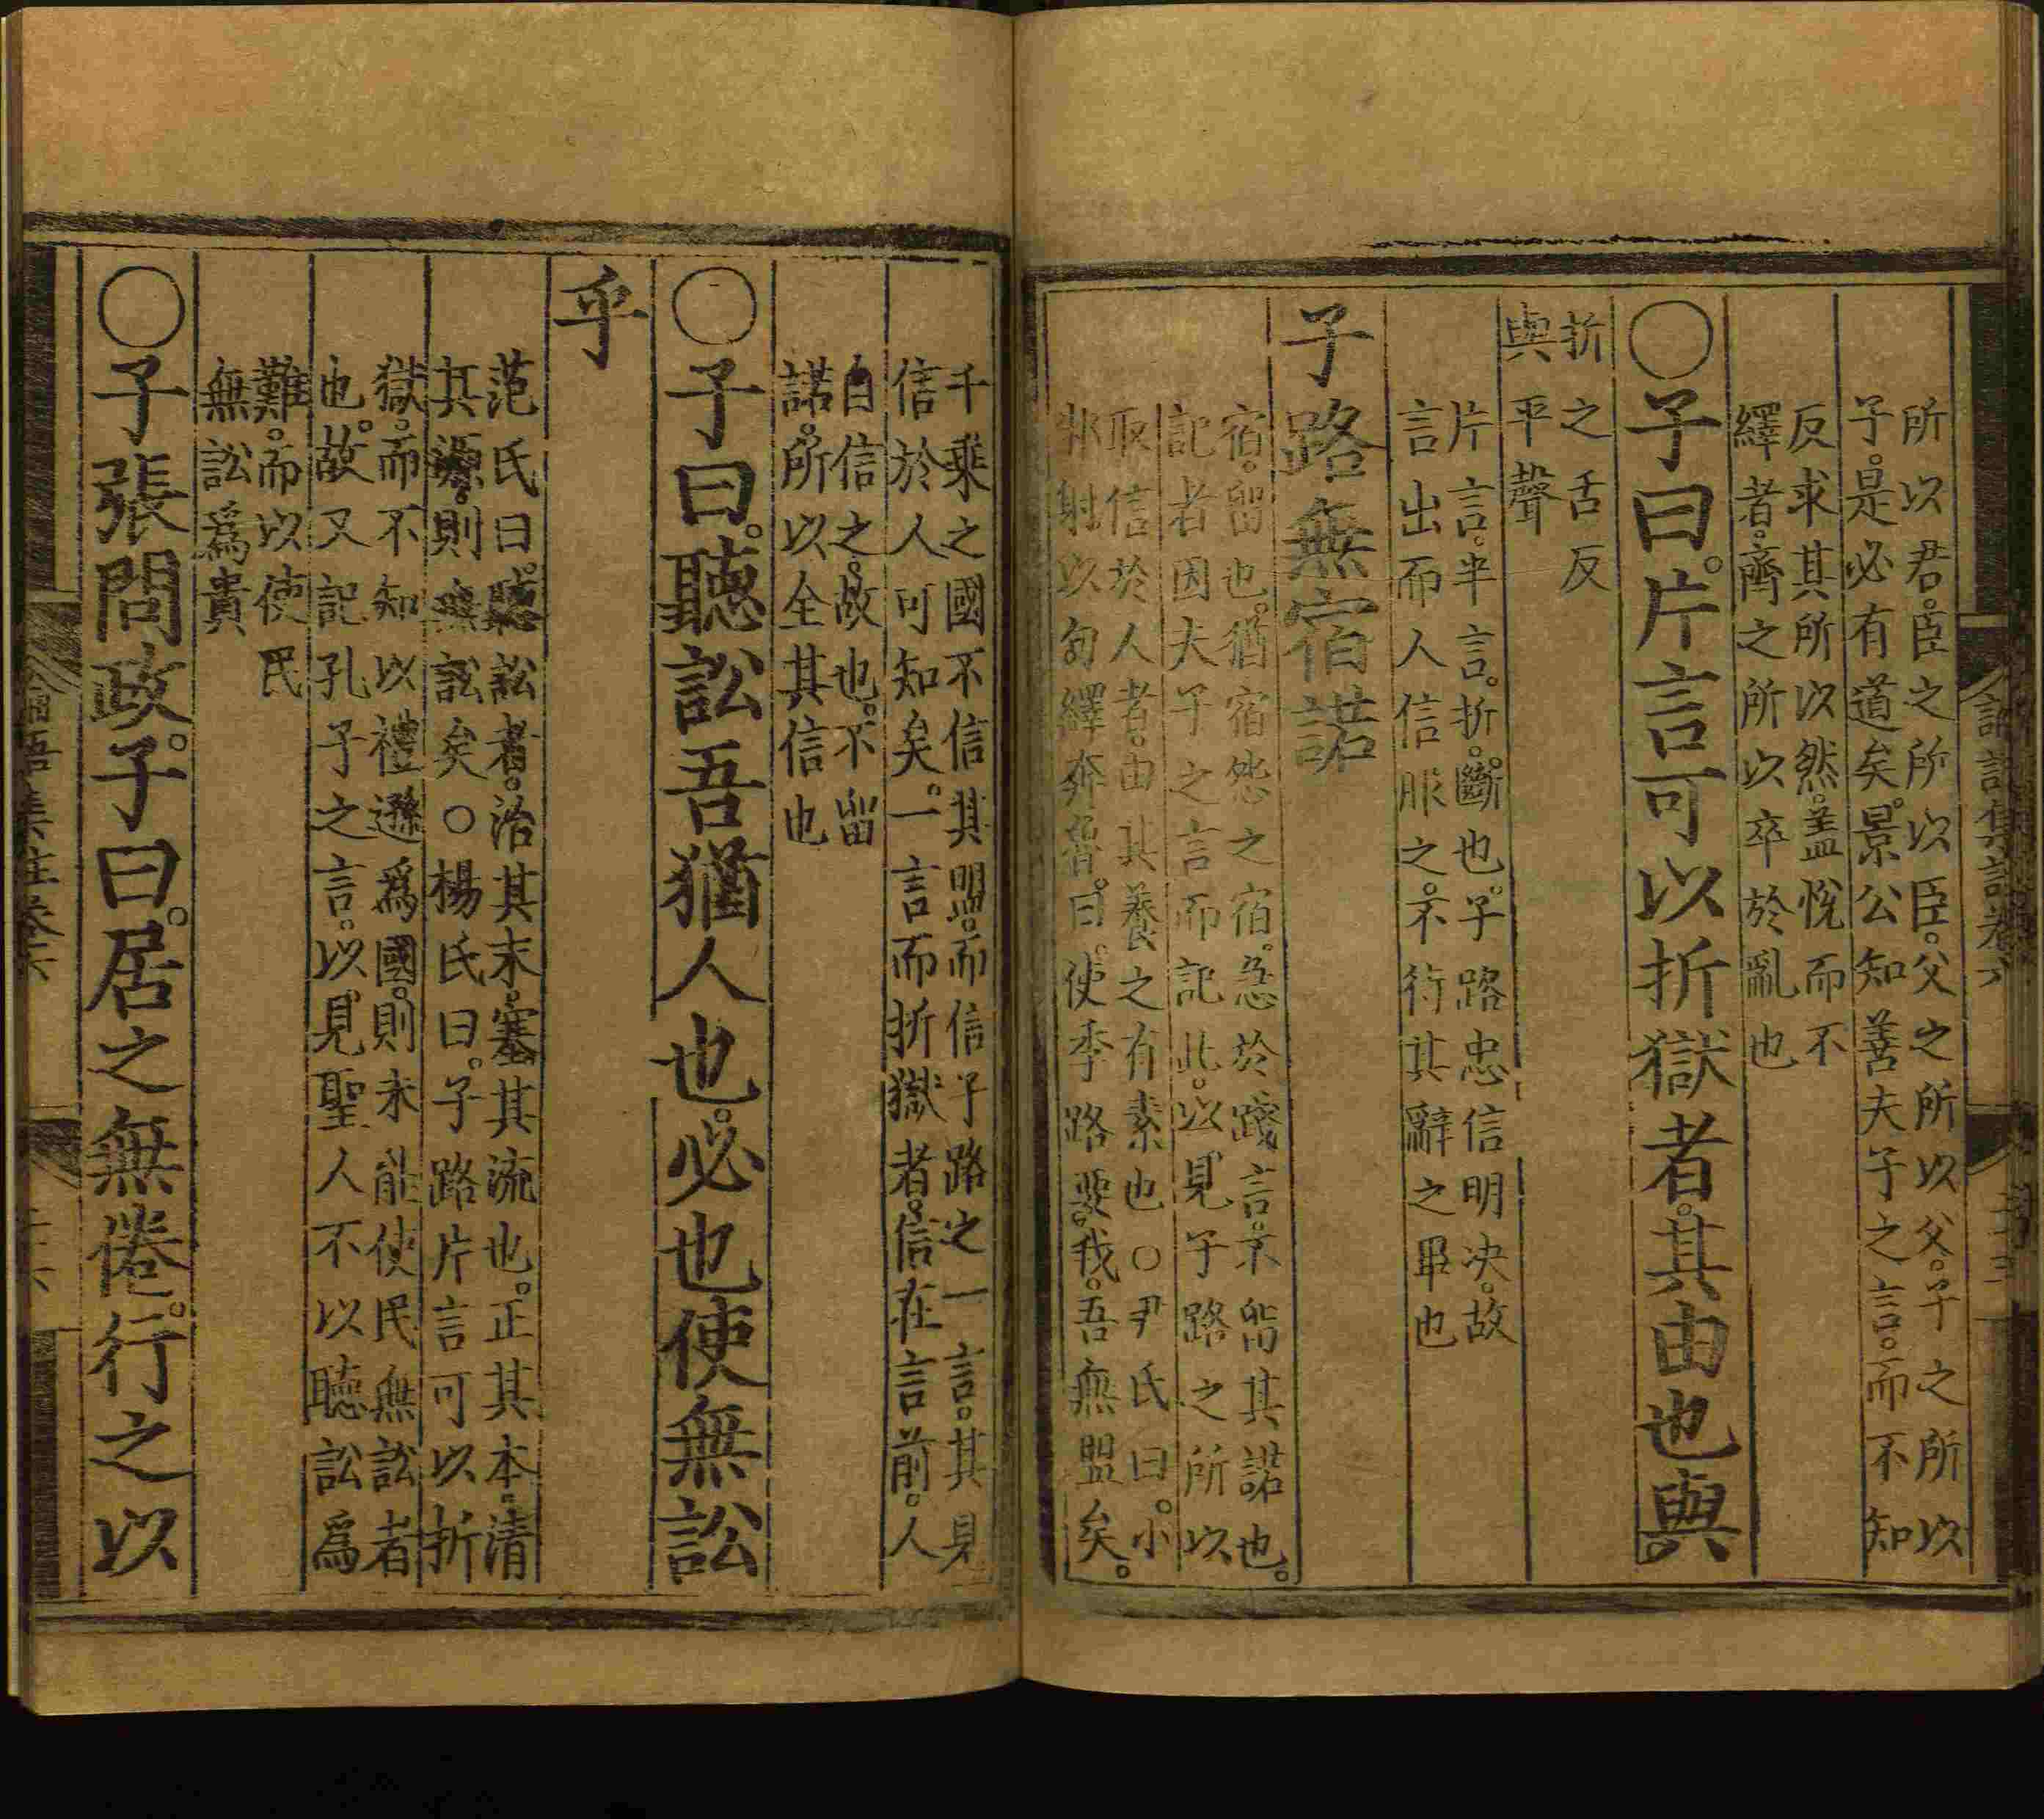 所以君。臣之所以臣。父之所以父。子之所以
子。是必有道矣。景公知善夫子之言。而不知
反求其所以然。盖悅而不
繹者。齊之所以卒於亂也
○子曰。片言可以折獄者。其由也與
折之舌反
與平聲
片言。半言。折。斷也。子路忠信明决。故
言出而人信服之。不待其辭之畢也
子路無宿諾
宿。留也。猶宿怨之宿。急於踐言。不留其諾也。
記者因夫子之言而記此。以見子路之所以
取信於人者。由其養之有素也○尹氏曰。小
邾射以句繹奔魯。曰。使季路要我。吾無盟矣。
千乘之國不信其盟。而信子路之一言。其見
信於人可知矣。一言而折獄者。信在言前。人
自信之。故也。不留
諾。所以全其信也
○子曰。聽訟吾猶人也。必也使無訟
乎
范氏曰。聽訟者。治其末。塞其流也。正其本。清
其源。則無訟矣○楊氏曰。子路片言可以折
獄。而不知以禮遜爲國。則未能使民無訟者
也。故又記孔子之言。以見聖人不以聽訟爲
難。而以使民
無訟爲貴
○子張問政。子曰。居之無倦。行之以